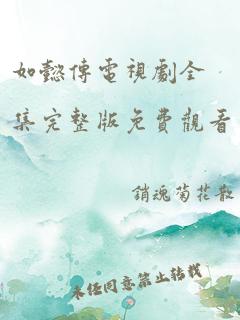 如懿傳電視劇全
集完整版免費觀看
銷魂菊花散
未經同意禁止轉載